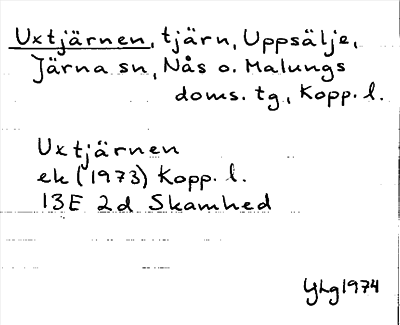 Uxtjärnen, tjärn, Uppsälje,
Järna sn, Nås o. Malungs
doms. tg, Kopp. l.
Uxtjärnen
ek (1973) Kopp. l.
13E 2d Skamhed
YLg 1974